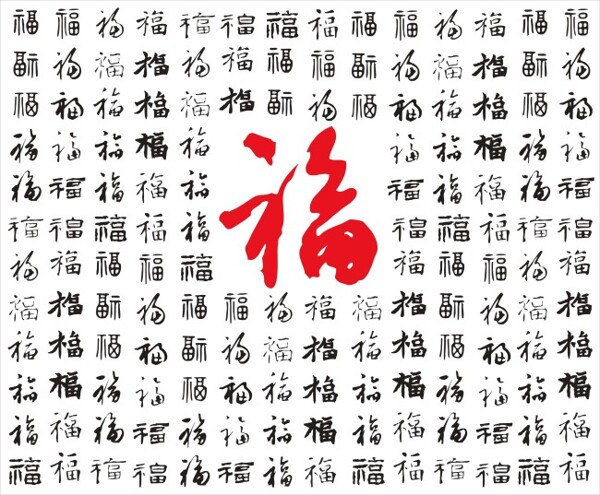 福福福福福福福福福福福福福福
福福福福福福福福福福福福福福
福福福福福福福福福福福福福福
福福福福福福福福福福
福福福福福福福福福福
福
福福福福福福福福福福
福福福福福福福福福福
福福福福福福福福福福福福福福
福福福福福福福福福福福福福福
福福福福福福福福福福福福福福
福福福福福福福福福福福福福福
福福福福福福福福福福福福福福